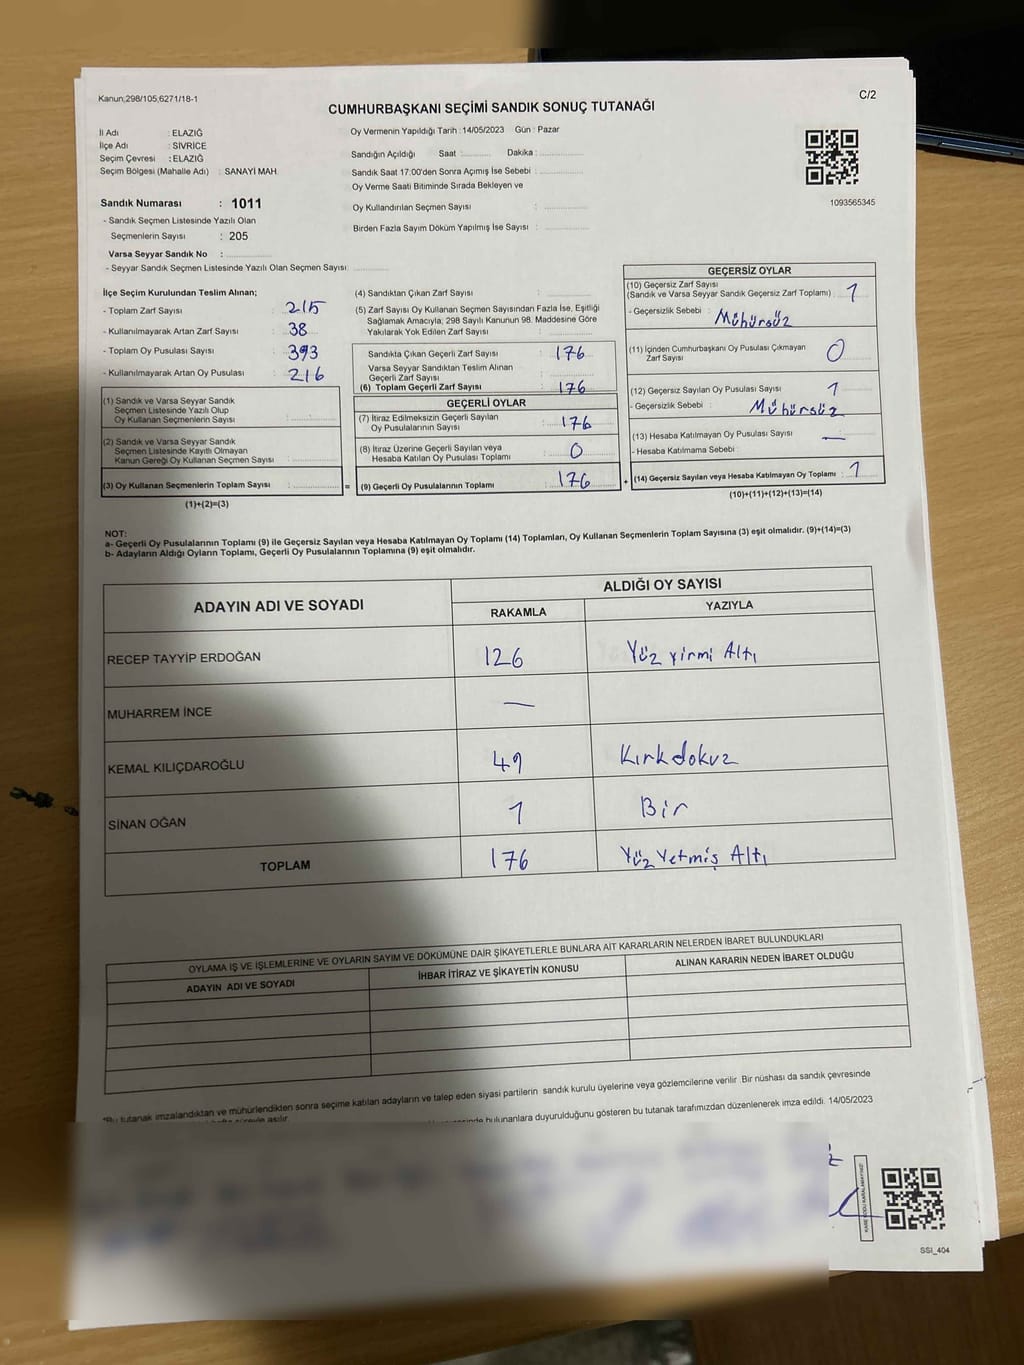 Kanun;298/105;6271/18-1
C/2
CUMHURBAŞKANI SEÇİMİ SANDIK SONUÇ TUTANAĞI
İl Adı : ELAZIĞ
İlçe Adı : SİVRİCE
Seçim Çevresi : ELAZIĞ
Seçim Bölgesi (Mahalle Adı) : SANAYİ MAH.
Sandık Numarası : 1011
- Sandık Seçmen Listesinde Yazılı Olan
Seçmenlerin Sayısı : 205
Varsa Seyyar Sandık No :
- Seyyar Sandık Seçmen Listesinde Yazılı Olan Seçmen Sayısı:
Oy Vermenin Yapıldığı Tarih : 14/05/2023 Gün : Pazar
Sandığın Açıldığı Saat : Dakika :
Sandık Saat 17.00'den Sonra Açımış İse Sebebi :
Oy Verme Saati Bitiminde Sırada Bekleyen ve
Oy Kullandırılan Seçmen Sayısı :
Birden Fazla Sayım Döküm Yapılmış İse Sayısı :
1093565345
İlçe Seçim Kurulundan Teslim Alınan;
- Toplam Zarf Sayısı : 215
- Kullanılmayarak Artan Zarf Sayısı : 38
- Toplam Oy Pusulası Sayısı : 393
- Kullanılmayarak Artan Oy Pusulası : 216
(1) Sandık ve Varsa Seyyar Sandık
Seçmen Listesinde Yazılı Olup
Oy Kullanan Seçmenlerin Sayısı :
(2) Sandık ve Varsa Seyyar Sandık
Seçmen Listesinde Kayıtlı Olmayan
Kanun Gereği Oy Kullanan Seçmen Sayısı :
(3) Oy Kullanan Seçmenlerin Toplam Sayısı :
(1)+(2)=(3)
=
(4) Sandıktan Çıkan Zarf Sayısı :
(5) Zarf Sayısı Oy Kullanan Seçmen Sayısından Fazla İse, Eşitliği
Sağlamak Amacıyla; 298 Sayılı Kanunun 98. Maddesine Göre
Yakılarak Yok Edilen Zarf Sayısı :
Sandıkta Çıkan Geçerli Zarf Sayısı : 176
Varsa Seyyar Sandıktan Teslim Alınan
Geçerli Zarf Sayısı :
(6) Toplam Geçerli Zarf Sayısı : 176
GEÇERLİ OYLAR
(7) İtiraz Edilmeksizin Geçerli Sayılan
Oy Pusulalarının Sayısı : 176
(8) İtiraz Üzerine Geçerli Sayılan veya
Hesaba Katılan Oy Pusulası Toplamı : 0
(9) Geçerli Oy Pusulalarının Toplamı : 176
+
GEÇERSİZ OYLAR
(10) Geçersiz Zarf Sayısı
(Sandık ve Varsa Seyyar Sandık Geçersiz Zarf Toplamı) : 1
- Geçersizlik Sebebi : Mühürsüz
(11) İçinden Cumhurbaşkanı Oy Pusulası Çıkmayan
Zarf Sayısı : 0
(12) Geçersiz Sayılan Oy Pusulası Sayısı : 1
- Geçersizlik Sebebi : Mühürsüz
(13) Hesaba Katılmayan Oy Pusulası Sayısı : —
- Hesaba Katılmama Sebebi :
(14) Geçersiz Sayılan veya Hesaba Katılmayan Oy Toplamı : 1
(10)+(11)+(12)+(13)=(14)
NOT:
a- Geçerli Oy Pusulalarının Toplamı (9) ile Geçersiz Sayılan veya Hesaba Katılmayan Oy Toplamı (14) Toplamları, Oy Kullanan Seçmenlerin Toplam Sayısına (3) eşit olmalıdır. (9)+(14)=(3)
b- Adayların Aldığı Oyların Toplamı, Geçerli Oy Pusulalarının Toplamına (9) eşit olmalıdır.
ADAYIN ADI VE SOYADI
ALDIĞI OY SAYISI
RAKAMLA YAZIYLA
RECEP TAYYİP ERDOĞAN 126 Yüz Yirmi Altı
MUHARREM İNCE —
KEMAL KILIÇDAROĞLU 49 Kırkdokuz
SİNAN OĞAN 1 Bir
TOPLAM 176 Yüz Yetmiş Altı
OYLAMA İŞ VE İŞLEMLERİNE VE OYLARIN SAYIM VE DÖKÜMÜNE DAİR ŞİKAYETLERLE BUNLARA AİT KARARLARIN NELERDEN İBARET BULUNDUKLARI
ADAYIN ADI VE SOYADI İHBAR İTİRAZ VE ŞİKAYETİN KONUSU ALINAN KARARIN NEDEN İBARET OLDUĞU
*Bu tutanak imzalandıktan ve mühürlendikten sonra seçime katılan adayların ve talep eden siyasi partilerin sandık kurulu üyelerine veya gözlemcilerine verilir. Bir nüshası da sandık çevresinde
asılır.
bulunanlara duyurulduğunu gösteren bu tutanak tarafımızdan düzenlenerek imza edildi. 14/05/2023
SSI_404